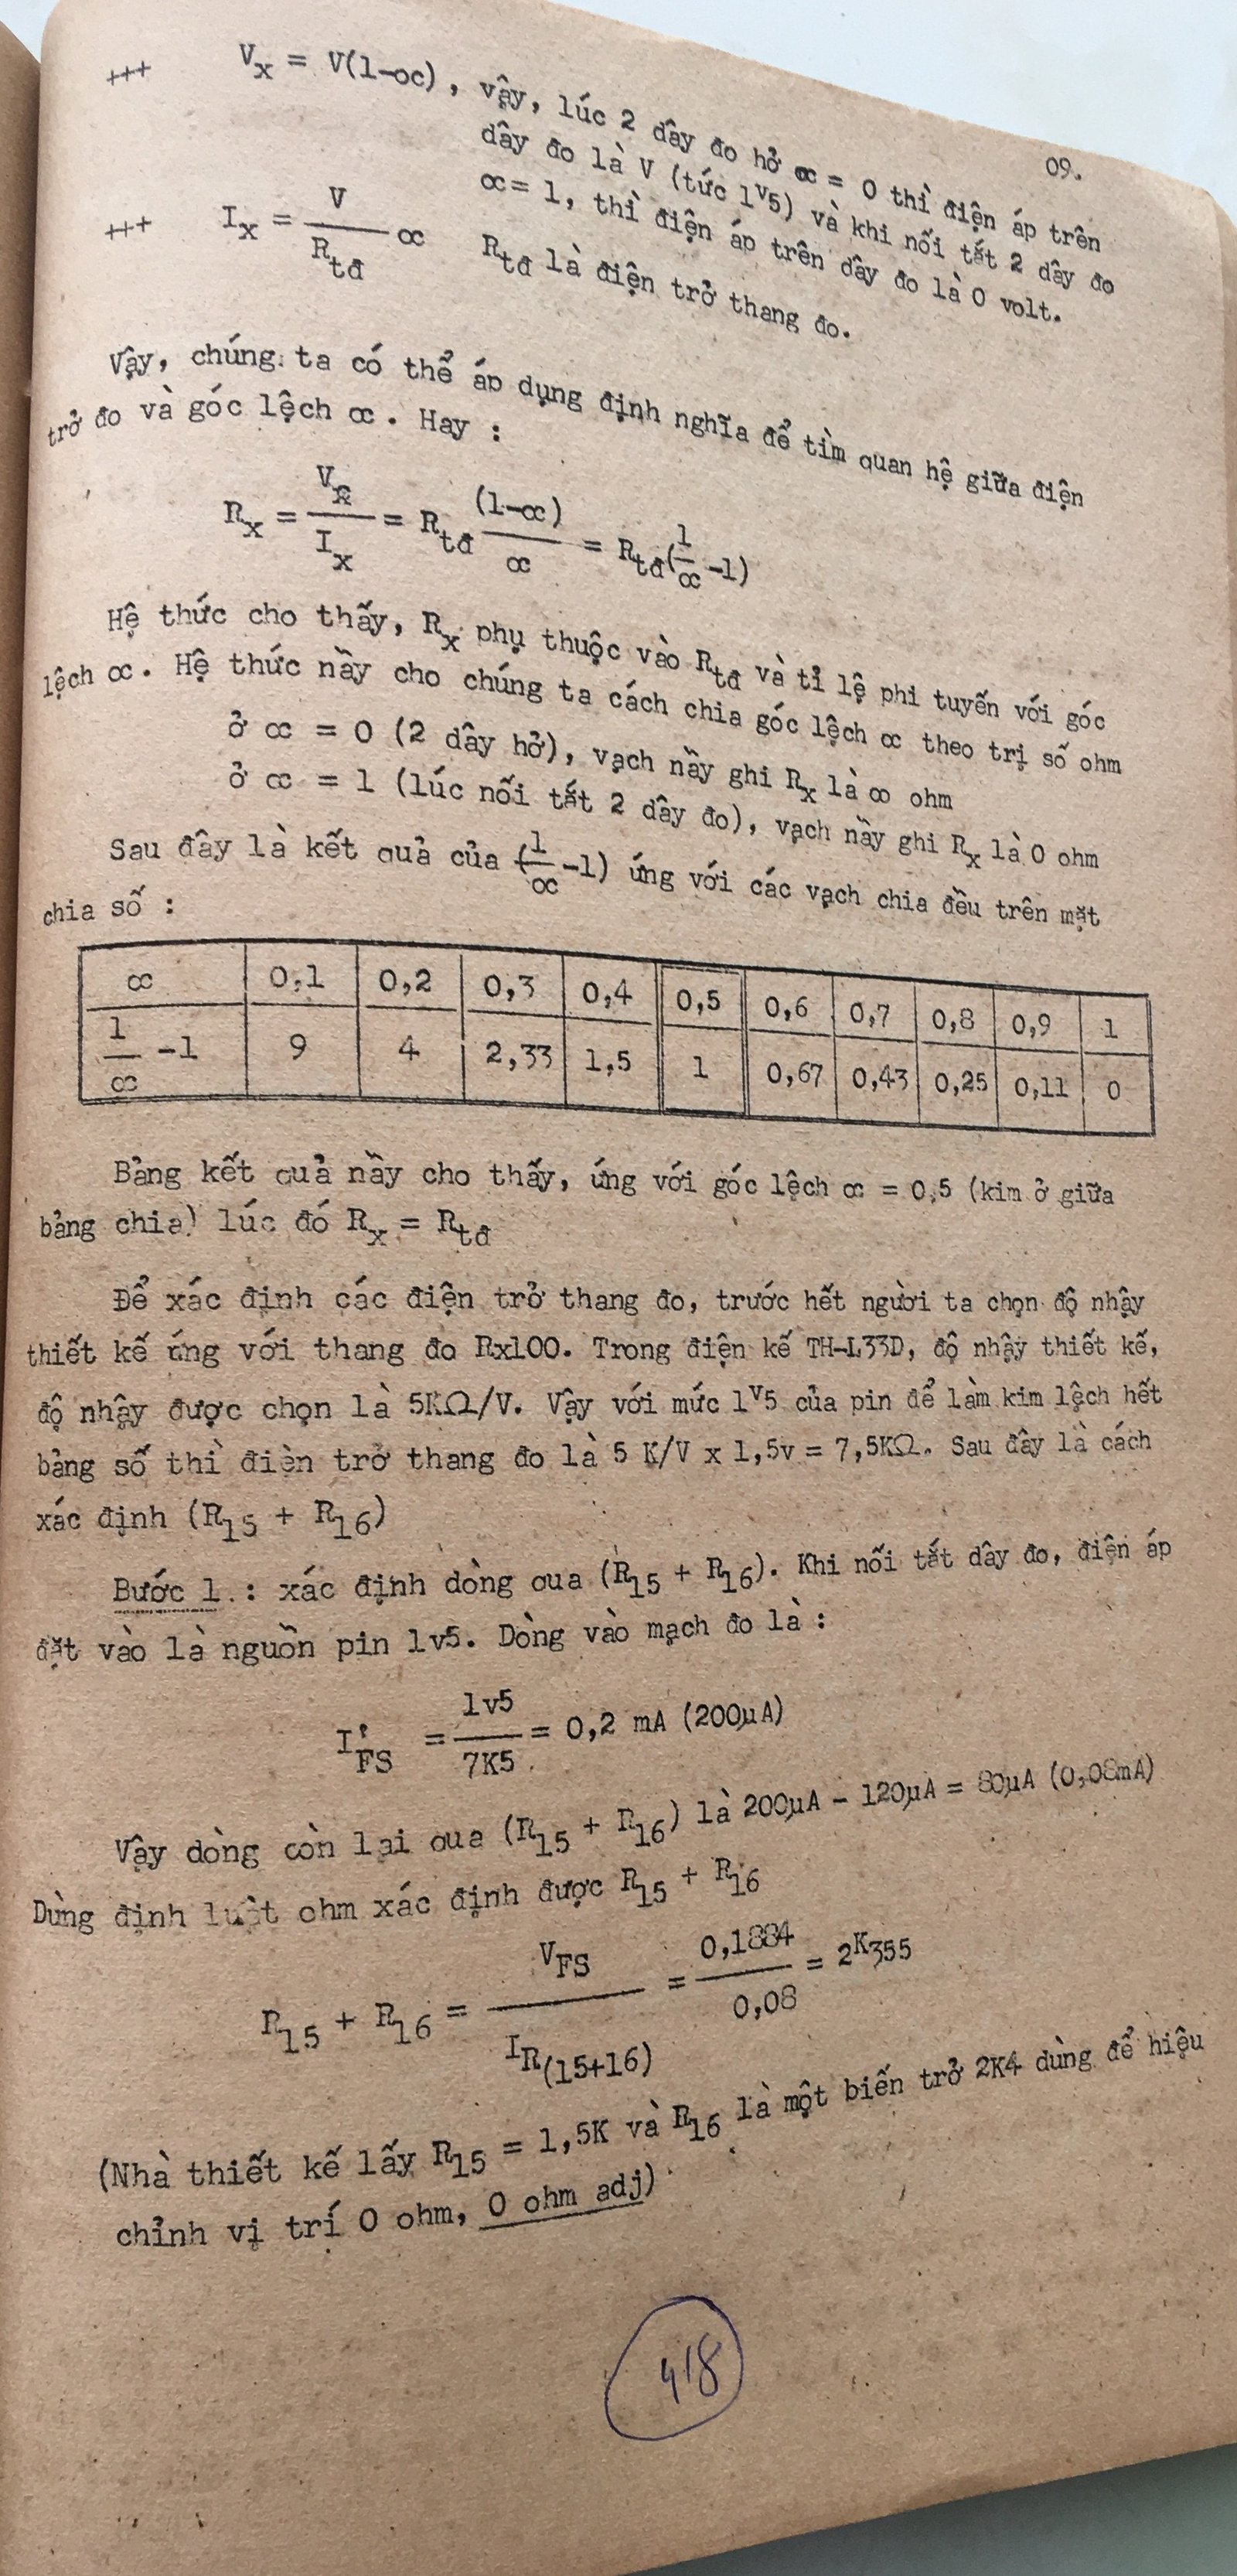 09.
+++ Vx = V(1-α), vậy, lúc 2 dây đo hở α = 0 thì điện áp trên
dây đo là V (tức 1V5) và khi nối tắt 2 dây đo
α = 1, thì điện áp trên dây đo là 0 volt.
+++ Ix = V/Rtđ α Rtđ là điện trở thang đo.
Vậy, chúng ta có thể áp dụng định nghĩa để tìm quan hệ giữa điện
trở đo và góc lệch α. Hay :
Rx = Vx/Ix = Rtđ (1-α)/α = Rtđ(1/α -1)
Hệ thức cho thấy, Rx phụ thuộc vào Rtđ và tỉ lệ phi tuyến với góc
lệch α. Hệ thức nầy cho chúng ta cách chia góc lệch α theo trị số ohm
ở α = 0 (2 dây hở), vạch nầy ghi Rx là ∞ ohm
ở α = 1 (lúc nối tắt 2 dây đo), vạch nầy ghi Rx là 0 ohm
Sau đây là kết quả của (1/α -1) ứng với các vạch chia đều trên mặt
chia số :
α 0,1 0,2 0,3 0,4 0,5 0,6 0,7 0,8 0,9 1
1/α -1 9 4 2,33 1,5 1 0,67 0,43 0,25 0,11 0
Bảng kết quả nầy cho thấy, ứng với góc lệch α = 0,5 (kim ở giữa
bảng chia) lúc đó Rx = Rtđ
Để xác định các điện trở thang đo, trước hết người ta chọn độ nhậy
thiết kế ứng với thang đo Rx100. Trong điện kế TH-L33D, độ nhậy thiết kế,
độ nhậy được chọn là 5KΩ/V. Vậy với mức 1V5 của pin để làm kim lệch hết
bảng số thì điện trở thang đo là 5 K/V x 1,5v = 7,5KΩ. Sau đây là cách
xác định (R15 + R16)
Bước 1 : xác định dòng qua (R15 + R16). Khi nối tắt dây đo, điện áp
đặt vào là nguồn pin 1v5. Dòng vào mạch đo là :
I'FS = 1v5/7K5 = 0,2 mA (200µA)
Vậy dòng còn lại qua (R15 + R16) là 200µA - 120µA = 80µA (0,08mA)
Dùng định luật ohm xác định được R15 + R16
R15 + R16 = VFS/IR(15+16) = 0,1884/0,08 = 2K355
(Nhà thiết kế lấy R15 = 1,5K và R16 là một biến trở 2K4 dùng để hiệu
chỉnh vị trí 0 ohm, 0 ohm adj)
418